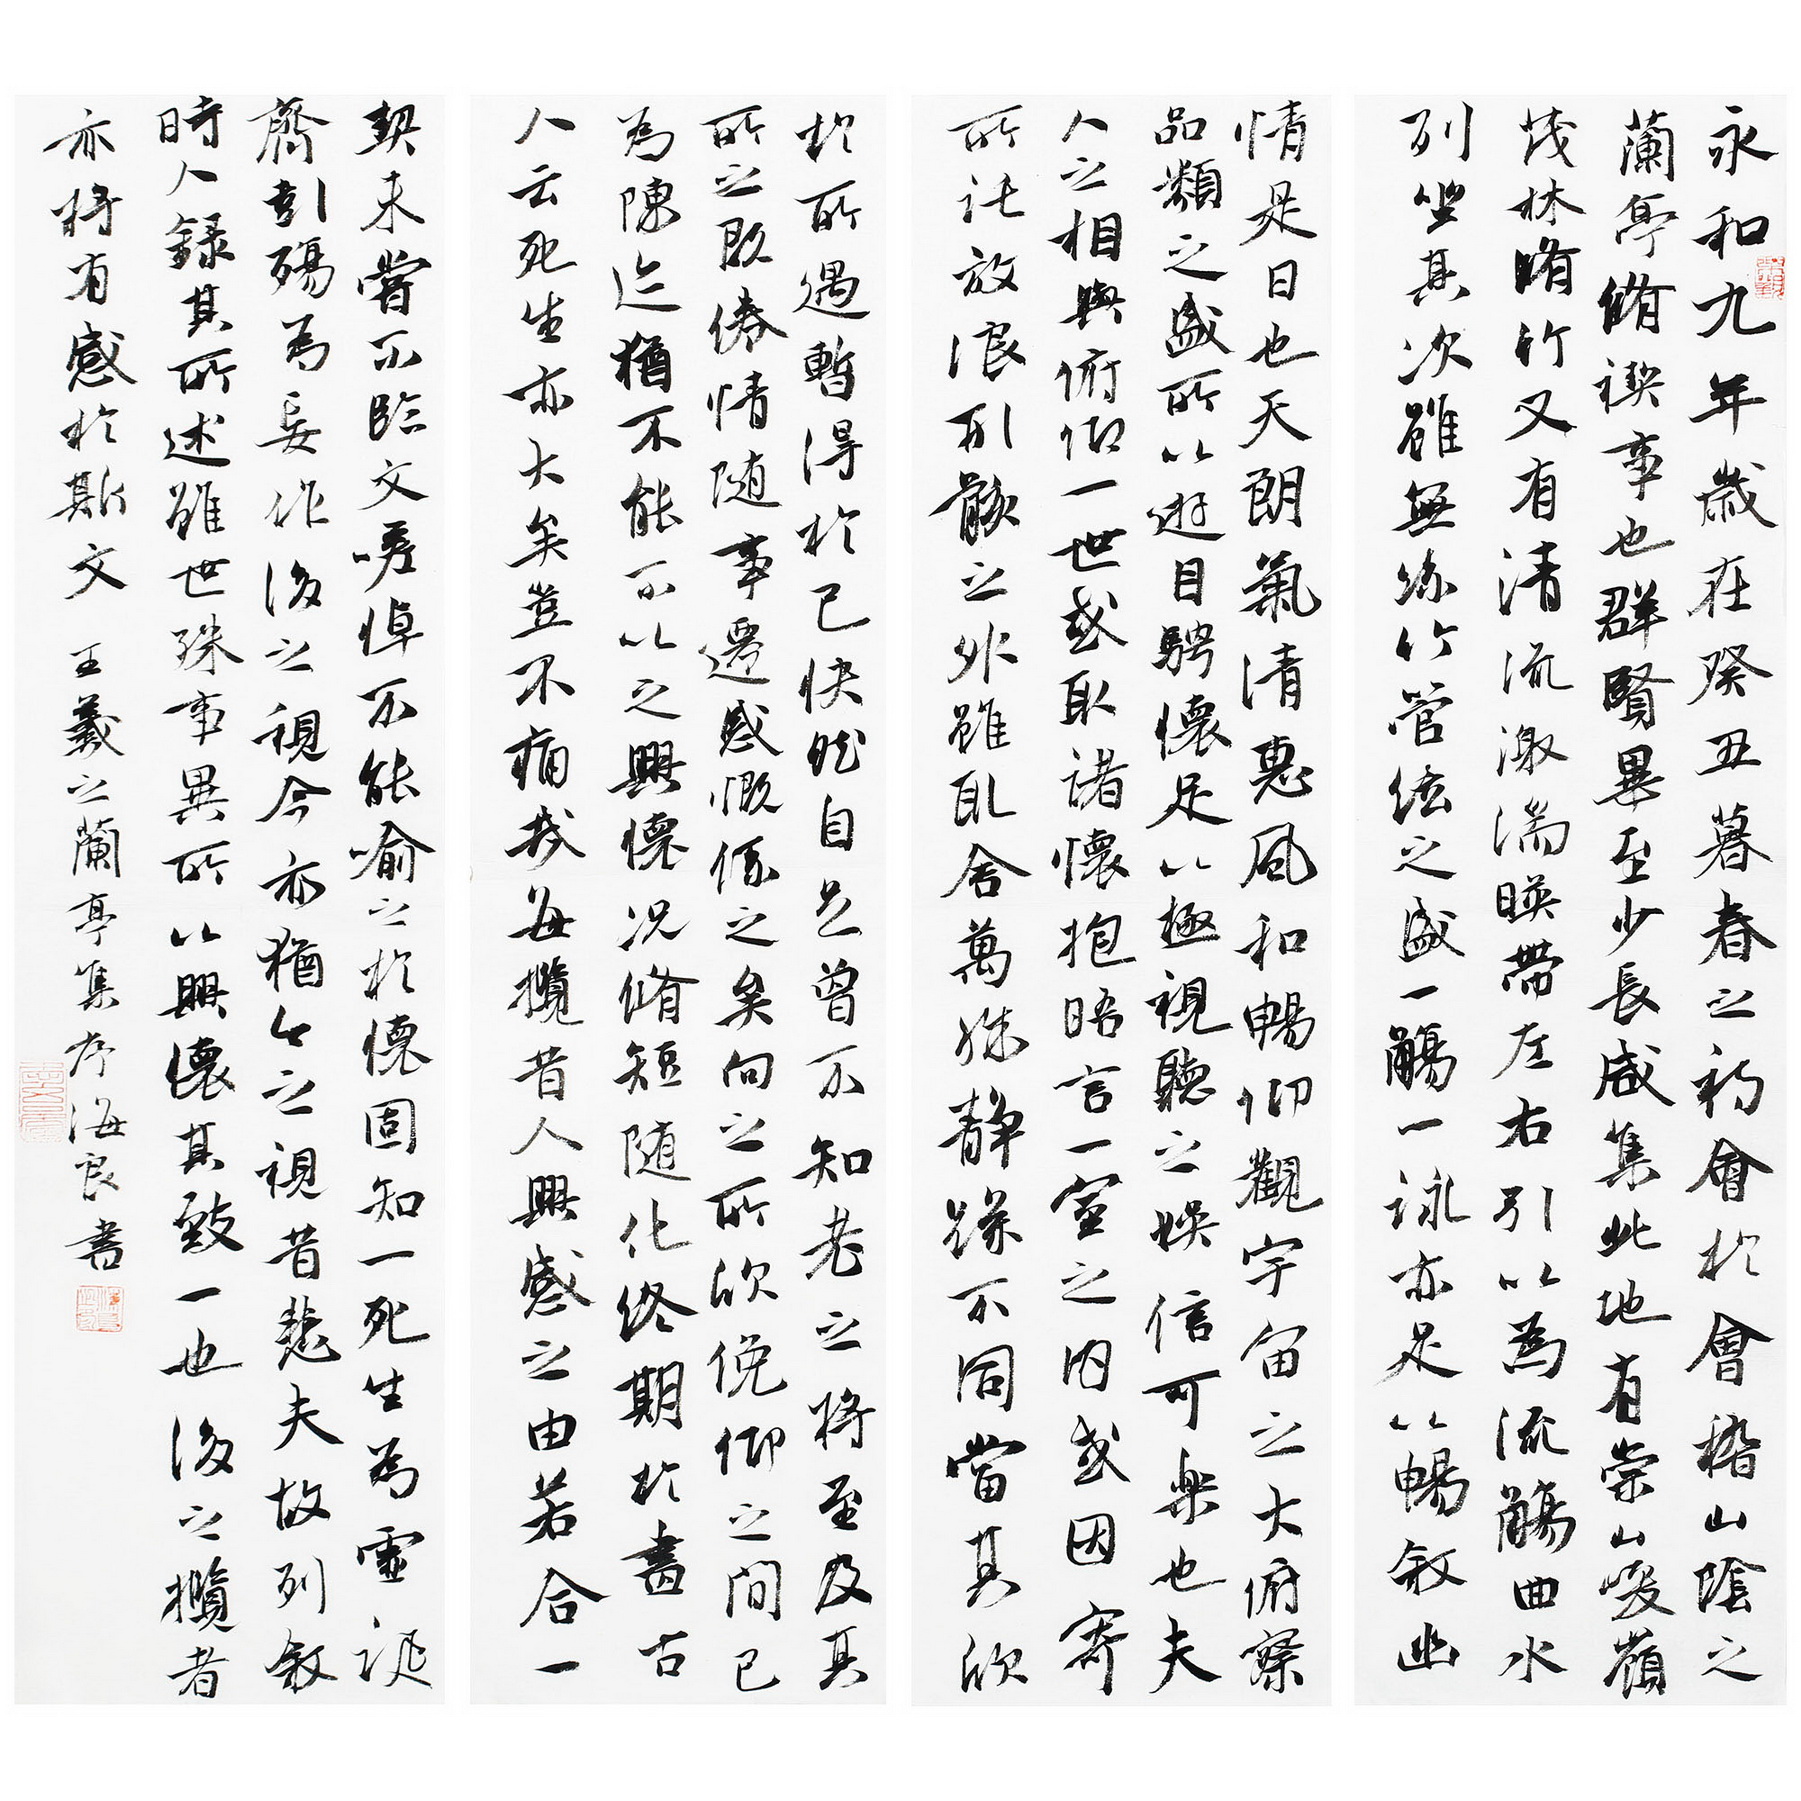 永和九年歲在癸丑暮春之初會於會稽山陰之
蘭亭脩禊事也群賢畢至少長咸集此地有崇山峻嶺
茂林脩竹又有清流激湍暎帶左右引以為流觴曲水
列坐其次雖無絲竹管弦之盛一觴一詠亦足以暢敘幽
情是日也天朗氣清惠風和暢仰觀宇宙之大俯察
品類之盛所以遊目騁懷足以極視聽之娛信可樂也夫
人之相與俯仰一世或取諸懷抱晤言一室之內或因寄
所託放浪形骸之外雖取舍萬殊靜躁不同當其欣
於所遇暫得於己快然自足曾不知老之將至及其
所之既倦情隨事遷感慨係之矣向之所欣俛仰之間已
為陳迹猶不能不以之興懷況脩短隨化終期於盡古
人云死生亦大矣豈不痛哉每攬昔人興感之由若合一
契未嘗不臨文嗟悼不能喻之於懷固知一死生為虛誕
齊彭殤為妄作後之視今亦猶今之視昔悲夫故列敘
時人錄其所述雖世殊事異所以興懷其致一也後之攬者
亦將有感於斯文 王羲之蘭亭集序海良書